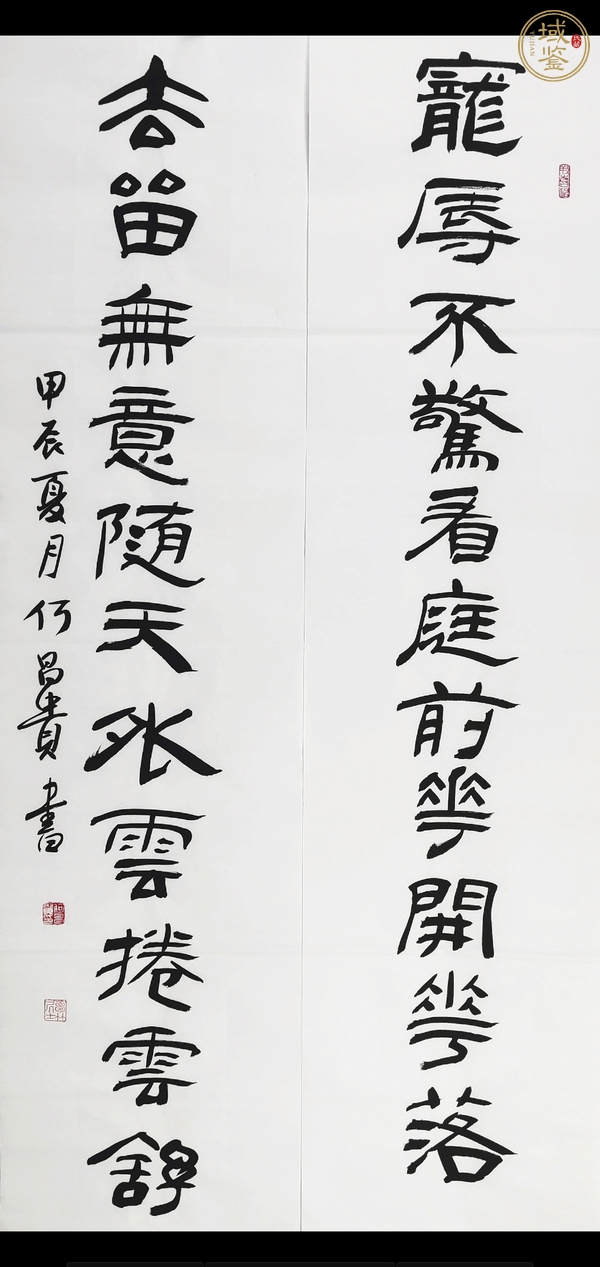 寵辱不驚看庭前花開花落
去留無意隨天外雲捲雲舒
甲辰夏月何昌貴書
域鉴
YUJIAN